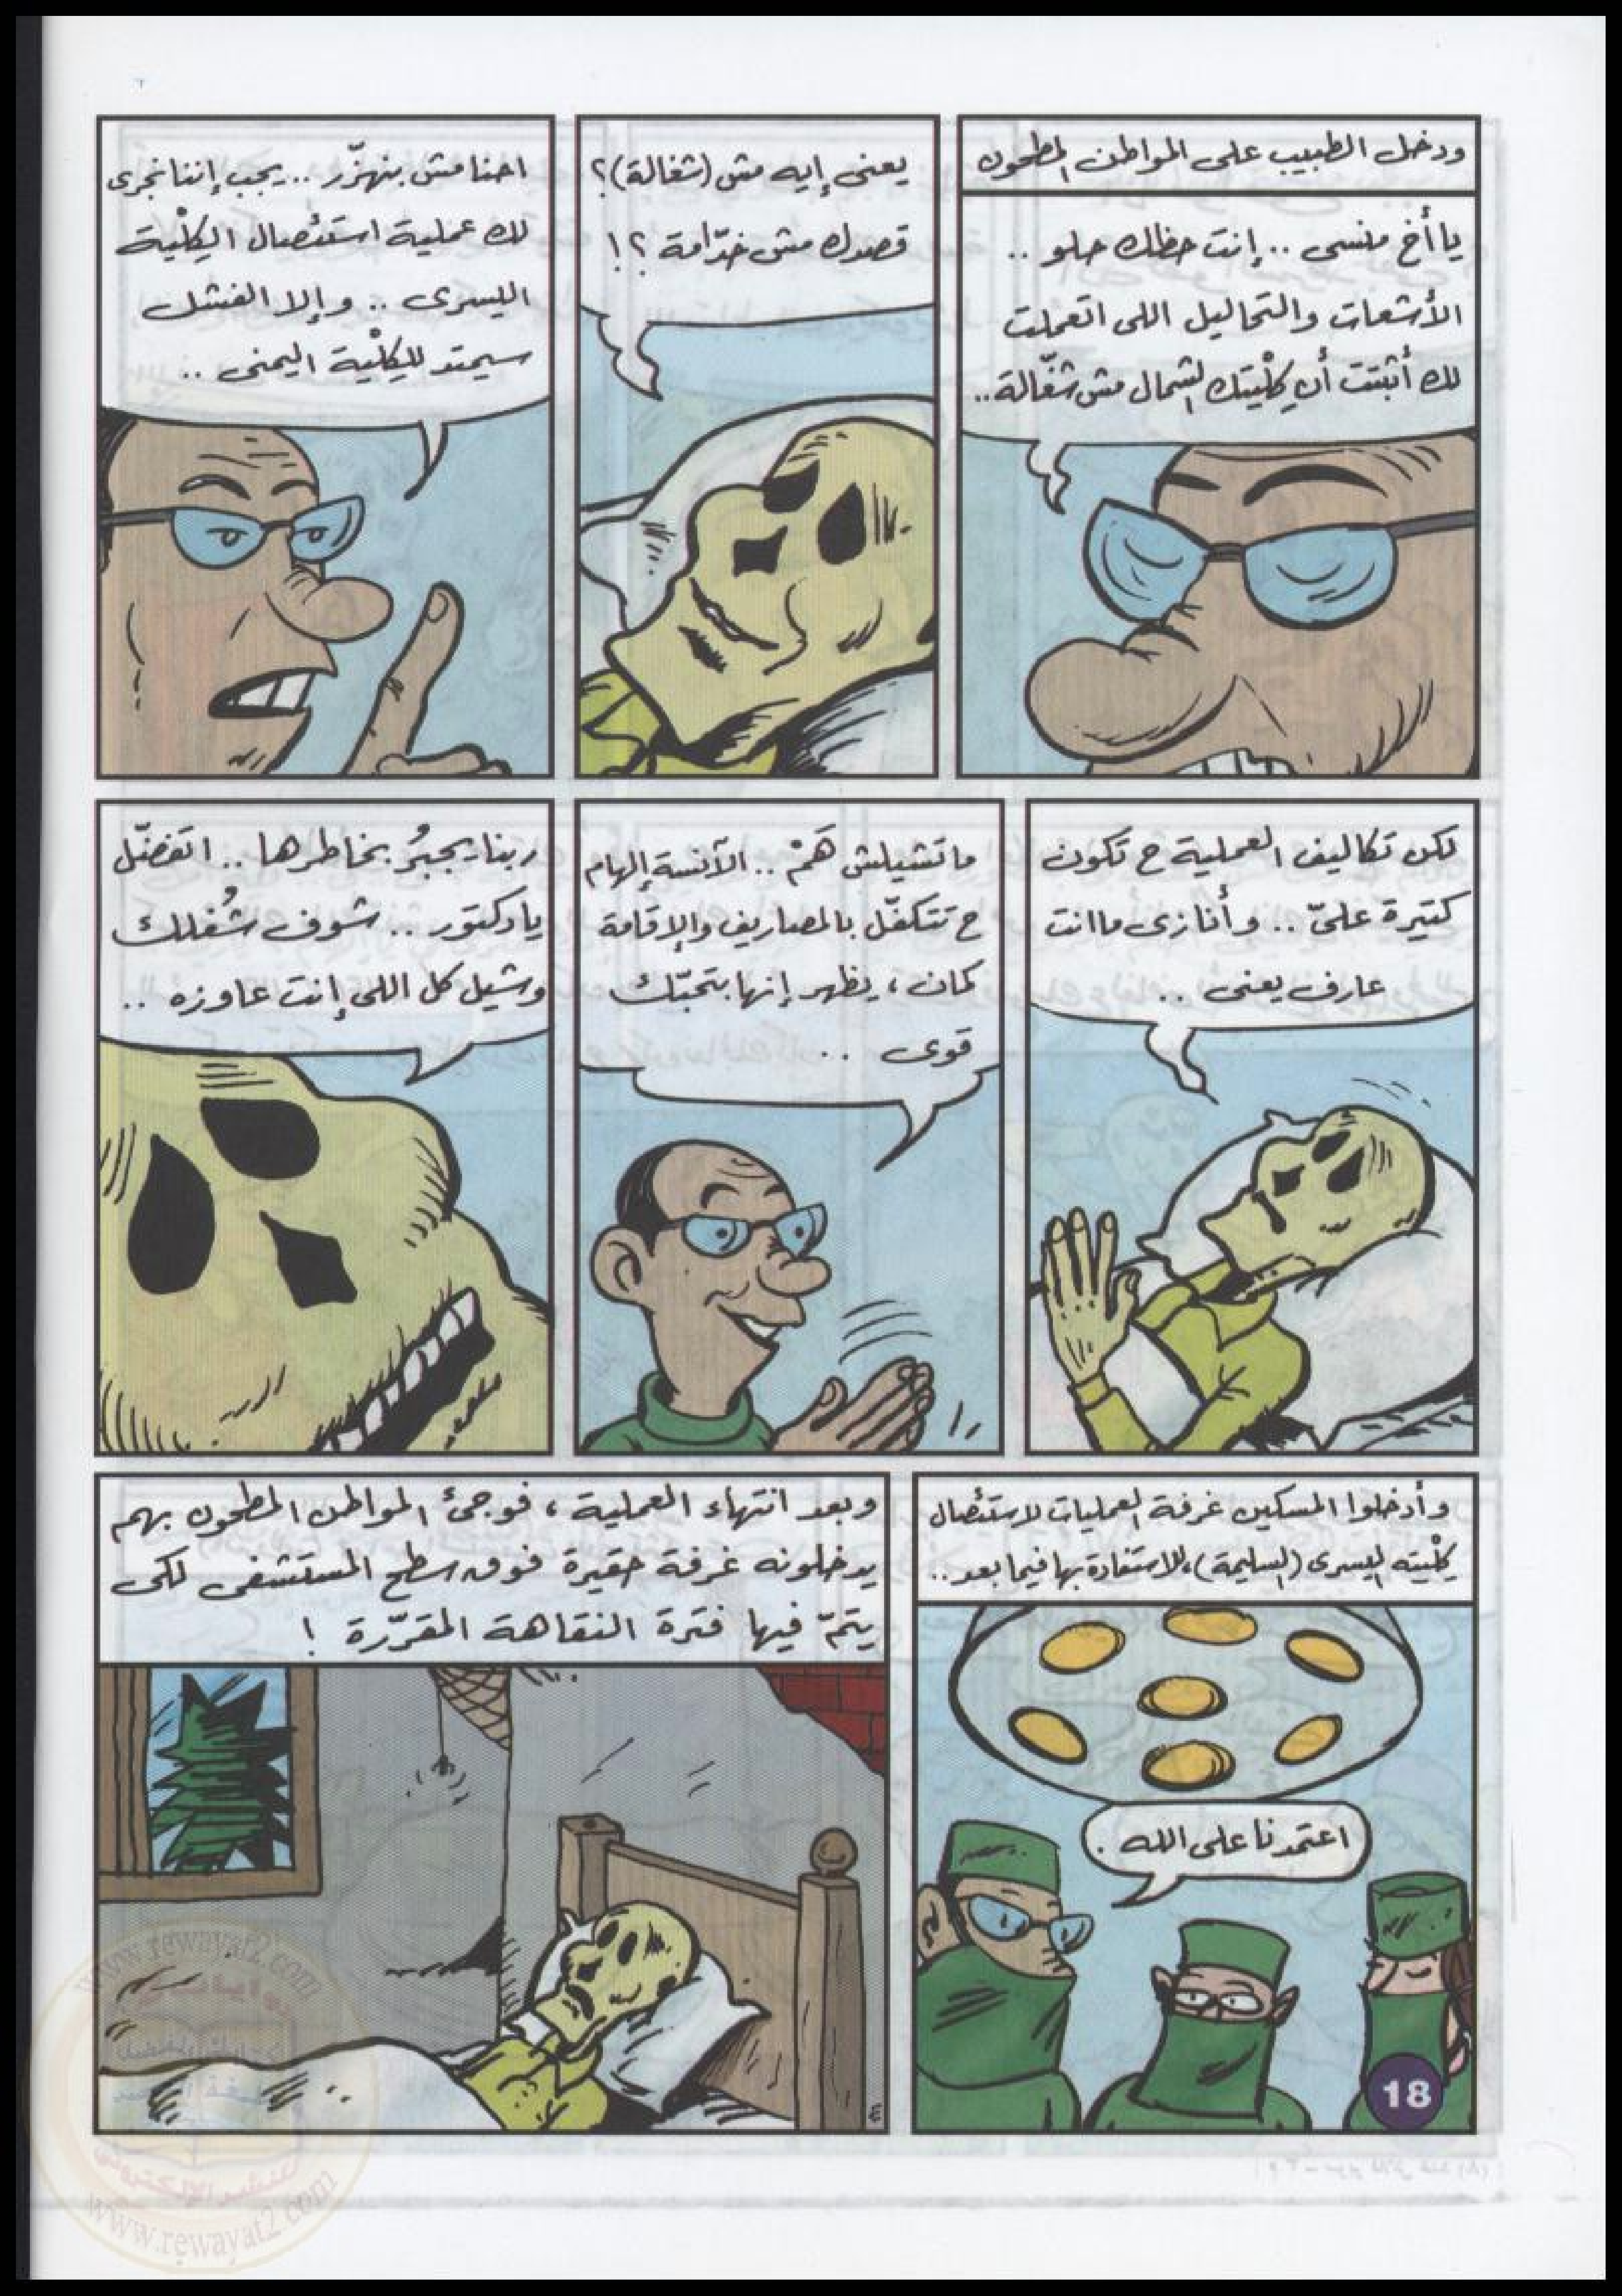 ودخل الطبيب على المواطن المطحون
يا أخ منسى .. إنت حظك حلو ..
الأشعات والتحاليل اللى اتعملت
لك أثبتت أن كِلْيتك الشمال مش شغّالة..
يعنى إيه مش (شغالة)؟
قصدك مش خدّامة ؟!
احنا مش بنهزّر .. يجب إننا نجرى
لك عملية استئصال الكِلْية
اليسرى .. وإلا الفشل
سيمتد للكِلْية اليمنى ..
لكن تكاليف العملية ح تكون
كتيرة علىّ .. وأنا زى ما انت
عارف يعنى ..
ما تشيلش هَمّ .. الآنسة إلهام
ح تتكفّل بالمصاريف والإقامة
كمان ، يظهر إنها بتحبّك
قوى ..
ربنا يجبُر بخاطرها .. اتفضّل
يا دكتور .. شوف شُغلك
وشيل كل اللى إنت عاوزه ..
وأدخلوا المسكين غرفة العمليات لاستئصال
كِلْيته اليسرى (السليمة) ، للاستفادة بها فيما بعد ..
اعتمدنا على الله .
وبعد انتهاء العملية ، فوجئ المواطن المطحون بهم
يدخلونه غرفة حقيرة فوق سطح المستشفى لكى
يتمّ فيها فترة النقاهة المقرّرة !
18
www.rewayat2.com
www.rewayat2.com